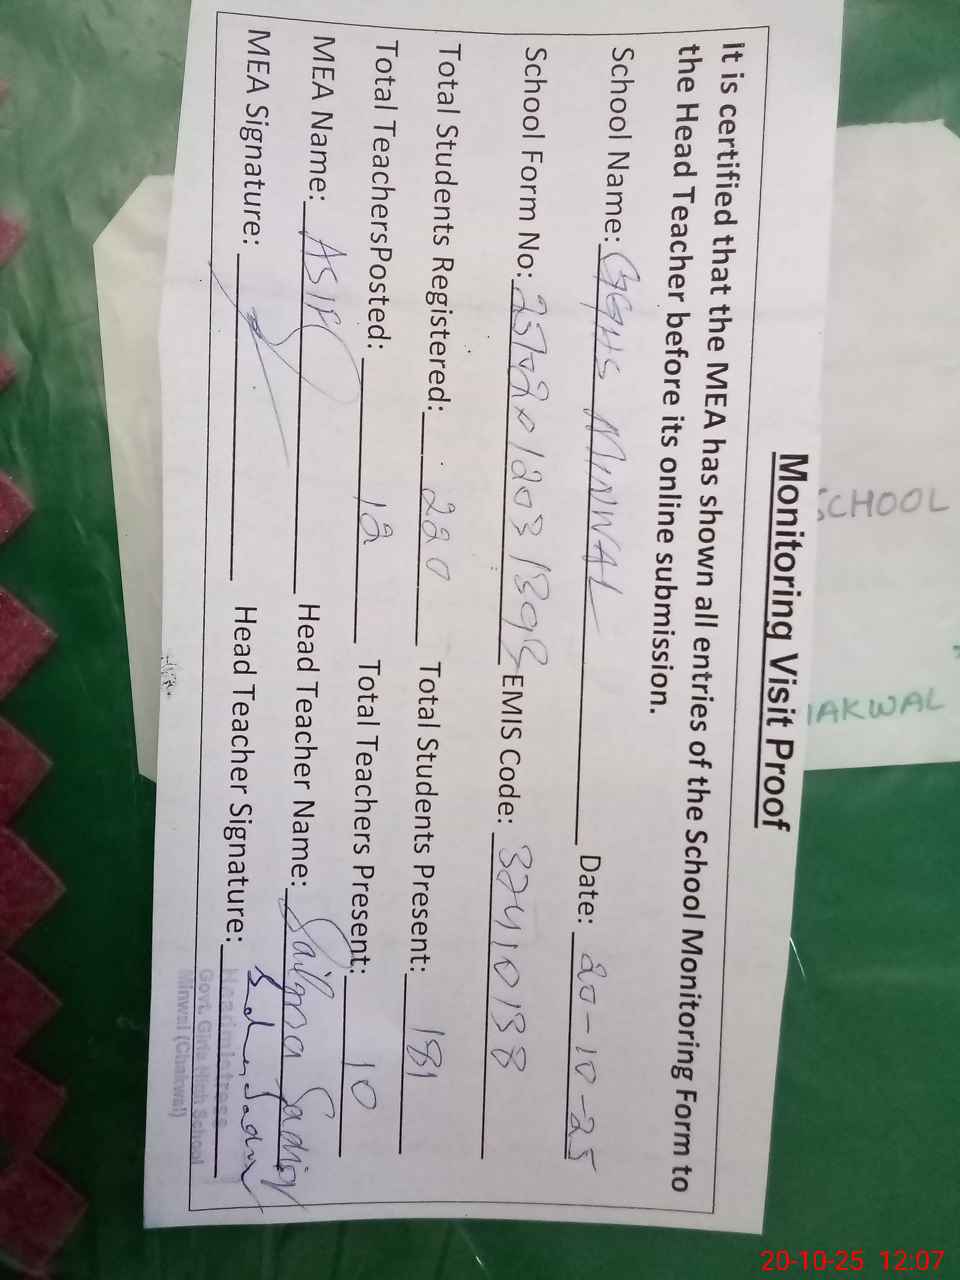 Monitoring Visit Proof
It is certified that the MEA has shown all entries of the School Monitoring Form to
the Head Teacher before its online submission.
School Name: GGHS MINWAL Date: 20-10-25
School Form No: EMIS Code: 37210138
Total Students Registered: 220 Total Students Present: 181
Total TeachersPosted: 12 Total Teachers Present: 10
MEA Name: ASIF Head Teacher Name: Saima
MEA Signature: Head Teacher Signature:
Headmistress
Govt. Girls High School
Minwal (Chakwal)
SCHOOL
HAKWAL
20-10-25 12:07